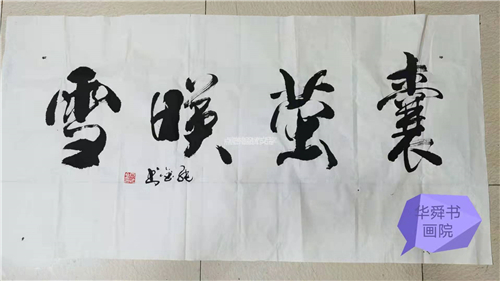 囊萤暎雪
华舜书
画院